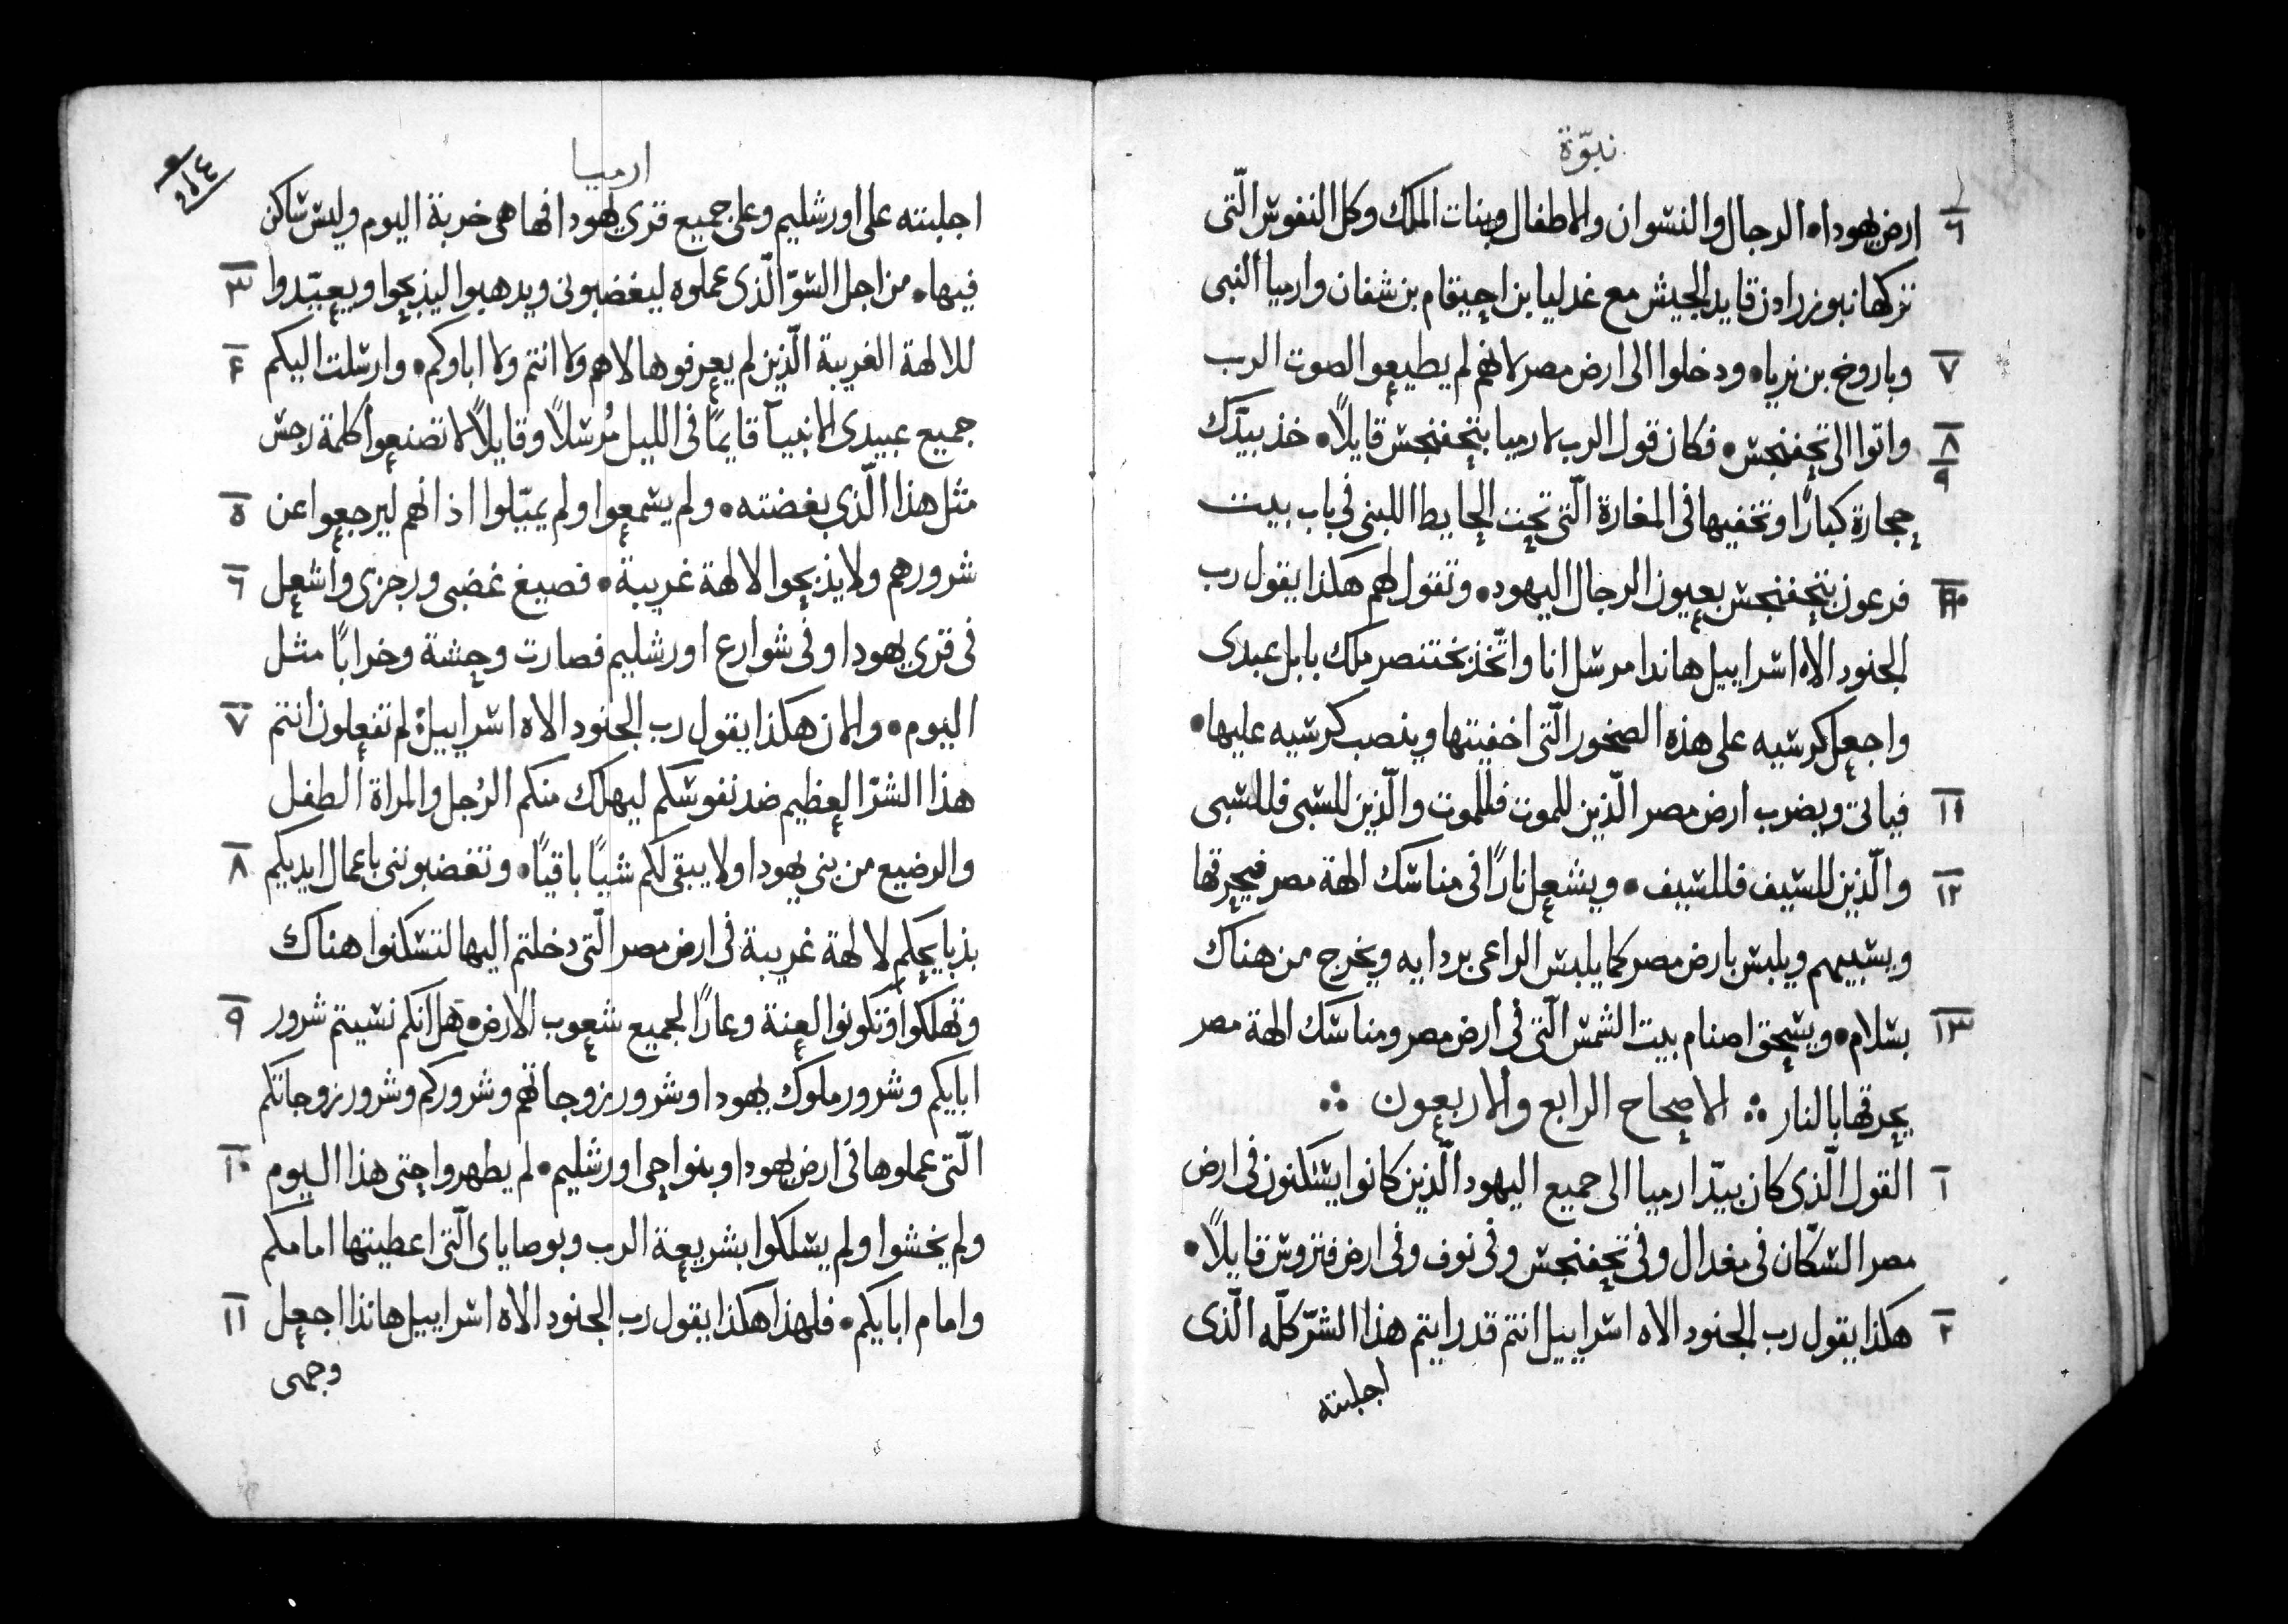 نبوّة
٦ ارض يهودا • الرجال والنسوان والاطفال وبنات الملك وكل النفوس الّتى
تركها نبوزرادن قايد الجيش مع غدليا بن احيقام بن شفان وارميا النبى
٧ وباروخ بن نريا • ودخلوا الى ارض مصر لانهم لم يطيعوا الصوت الرب
٨ واتوا الى تحفنحس • فكان قول الرب لارميا بتحفنحس قايلاً • خذ بيدّك
٩ حجارة كبارًا وتخفيها فى المغارة الّتى تحت الحايط اللبنى فى باب بيت
١٠ فرعون بتحفنحس بعيون الرجال اليهود • وتقول لهم هكذا يقول رب
الجنود الاه اسراييل هاندا مرسل انا واتّخذ بختنصر ملك بابل عبدى
واجعل كرسيه على هذه الصخور الّتى اخفيتها وينصب كرسيه عليها •
١١ فياتى ويضرب ارض مصر الّذين للموت فللموت والّذين للسبى فللسبى
١٢ والّذين للسيف فللسيف • ويشعل نارًا فى مناسك الهة مصر فيحرقها
ويسبيهم ويلبس بارض مصر كما يلبس الراعى بردايه ويخرج من هناك
١٣ بسلام • ويسحق اصنام بيت الشمس الّتى فى ارض مصر ومناسك الهة مصر
يحرقها بالنار ∴ الاصحاح الرابع والاربعون ∴
١ القول الّذى كان بيدّ ارميا الى جميع اليهود الّذين كانوا يسكنون فى ارض
مصر السّكان فى مغدال وفى تحفنحس وفى نوف وفى ارض فتروس قايلاً •
٢ هكذا يقول رب الجنود الاه اسراييل انتم قد رايتم هذا الشرّ كلّه الّذى
اجلبته
ارميا
اجلبته على اورشليم وعلى جميع قرى يهودا انها هى خربة اليوم وليس ساكن
٣ فيها • من اجل السّوّ الّذى عملوه ليغضبونى ويدهبوا ليذبحوا ويعبّدوا
٤ للالهة الغريبة الّذين لم يعرفوها لا هم ولا انتم ولا اباوكم • وارسلت اليكم
جميع عبيدى الانبيآ قايمًا فى الليل مُرسلاً وقايلاً لا تصنعوا كلمة رجس
٥ مثل هذا الّذى بغضته • ولم يسمعوا ولم يميّلوا اذانهم ليرجعوا عن
٦ شرورهم ولا يذبحوا الالهة غريبة • فصيغ غضبى ورجزى واشعل
فى قرى يهودا وفى شوارع اورشليم فصارت وحشة وخرابًا مثل
٧ اليوم • والان هكذا يقول رب الجنود الاه اسراييل لم تفعلون انتم
هذا الشرّ العظيم ضد نفوسكم ليهلك منكم الرُجل والمراة الطفل
٨ والرضيع من بنى يهودا ولا يبقى لكم شيًا باقيًا • وتغضبوننى باعمال ايديكم
بذبايحكم لالهة غريبة فى ارض مصر الّتى دخلتم اليها لتسكنوا هناك
٩ وتهلكوا وتكونوا لعنة وعارًا لجميع شعوب الارض • هل انكم نسيتم شرور
ابايكم وشرور ملوك يهودا وشرور زوجاتهم وشروركم وشرور زوجاتكم
١٠ الّتى عملوها فى ارض يهودا وبنواحى اورشليم • لم يطهروا حتى هذا اليوم
ولم يخشوا ولم يسلكوا بشريعة الرب وبوصاياى الّتى اعطيتها امامكم
١١ وامام ابايكم • فلهذا هكذا يقول رب الجنود الاه اسراييل هانذا اجعل
وجهى